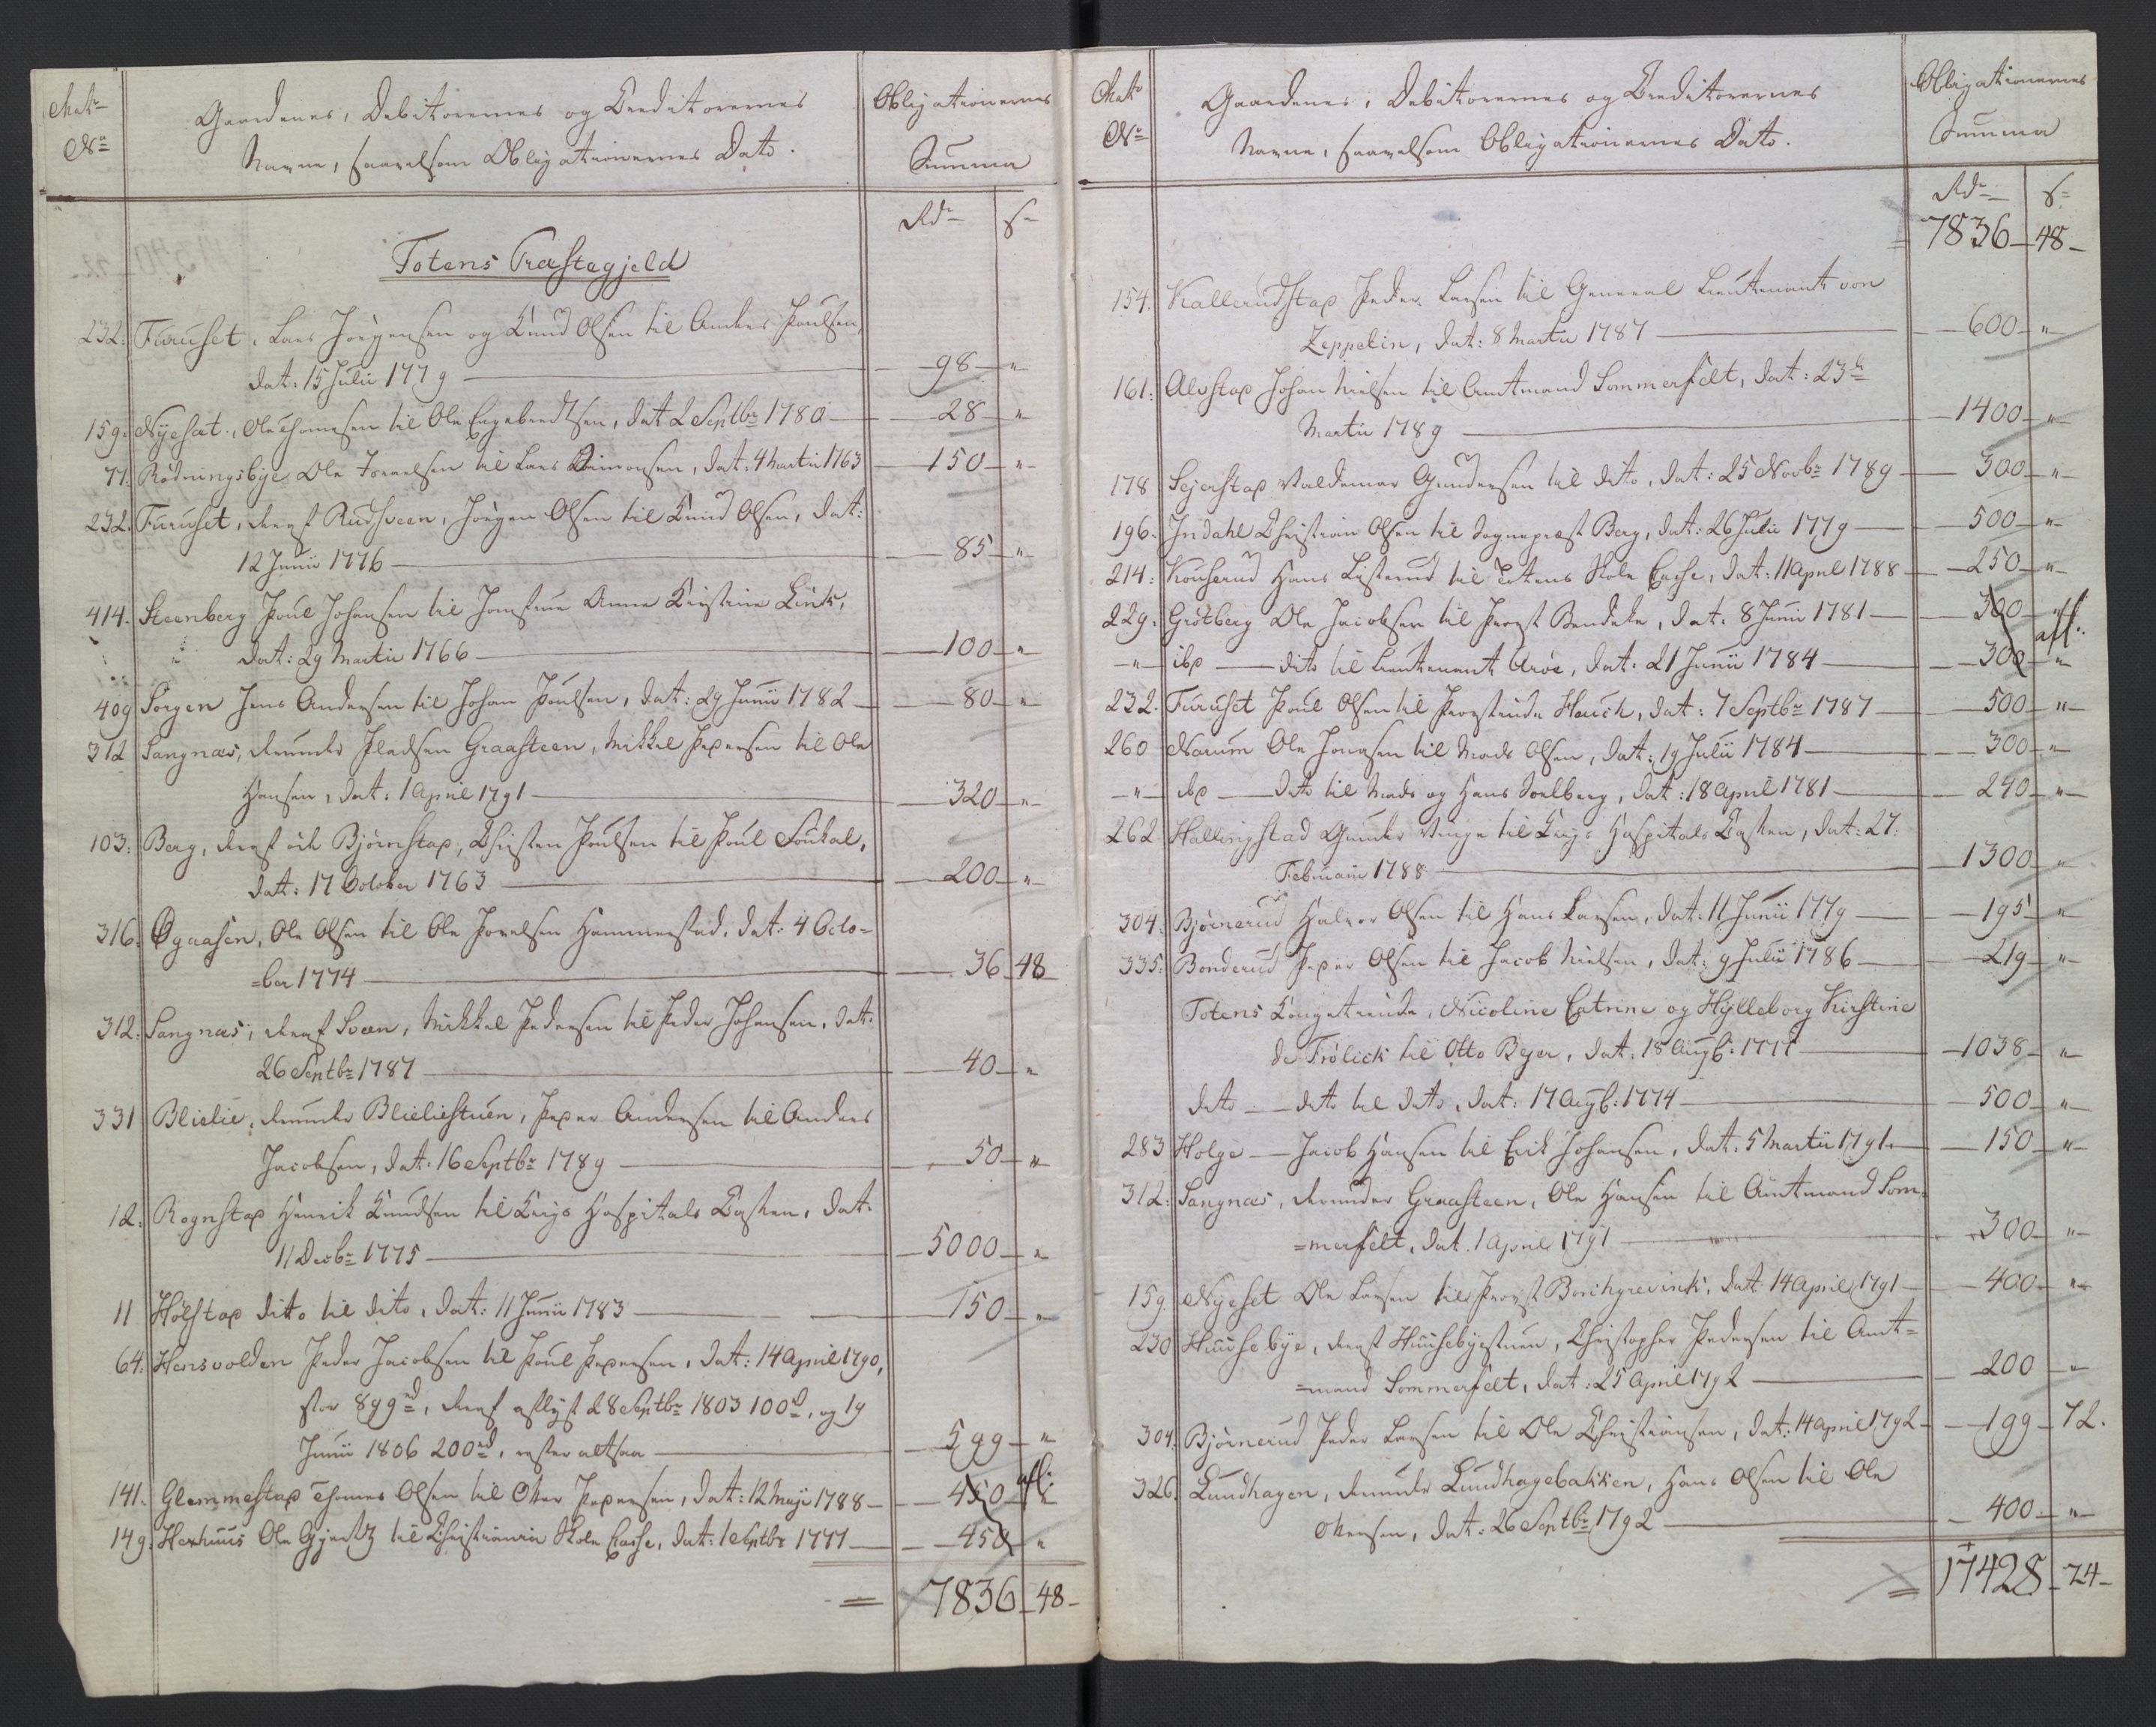 Matr
No
Gaardenes, Debitorernes og Creditorernes
Navne, saavelsom Obligationernes Dato.
Obligationernes
Summa
Rdr s
Totens Præstegjeld
232. Furuset, Lars Jørgensen og Knud Olsen til Anders Poulsen
dat: 15 Julii 1779 98 "
159. Nyeset, Ole Thomesen til Ole Engebredtsen, dat 2 Septbr 1780 28 "
77. Rødningsbye Ole Joenelsen til Lars Simonsen, dat: 4 Martii 1763 150 "
232. Furuset, deraf Rudsveen, Jørgen Olsen til Knud Olsen, dat:
12 Junii 1776 85 "
414. Steenberg Poul Johansen til Jomfrue Anne Kirstine Linds,
dat: 29 Martii 1766 100 "
409 Sørgen Jens Andersen til Johan Poulsen, dat: 29 Junii 1782 80 "
312 Sangnæs, derunder Pladsen Graasteen, Mikkel Pedersen til Ole
Hansen, dat: 1 April 1791 320 "
103. Berg, deraf øde Bjørnstap, Christen Poulsen til Poul Soukal,
dat: 17 October 1763 200 "
316. Øgaasen, Ole Olsen til Ole Povelsen Hammerstad, dat: 4 Octo=
=ber 1774 36 48
312. Sangnæs, deraf Sveen, Mikkel Pedersen til Peder Johansen, dat:
26 Septbr 1787 40 "
331 Blilie, derunder Bliliestuen, Peder Andersen til Anders
Jacobsen, dat: 16 Septbr 1789 50 "
12. Rognstap Henrik Knudsen til Krigs Hospitals Cassen, dat:
11 Decbr 1775 5000 "
11 Hølstap dito til dito, dat: 11 Junii 1783 150 "
64. Hensvolden Peder Jacobsen til Poul Pedersen, dat: 14 April 1790,
stor 899 rd, deraf aflyst 28 Septbr 1803 100 rd, og 19
Junii 1806 200 rd, rester altsaa 599 "
141. Glemmestap Thomes Olsen til Oker Pedersen, dat: 12 Maji 1788 450 afl:
149. Hexhuus Ole Gjertz til Christiania Skole Casse, dat: 1 Septbr 1777 450 "
= 7836 48
Matr
No
Gaardenes, Debitorernes og Creditorernes
Navne, saavelsom Obligationernes Dato.
Obligationernes
Summa
Rdr s
= 7836 48
154. Kallerudstap Peder Larsen til General Lieutenant von
Zeppelin, dat: 8 Martii 1787 600 "
161. Alvstap Johan Nielsen til Amtmand Sommerfelt, dat: 23de
Martii 1789 1400 "
178 Sejerstap Valdemar Gundersen til dito, dat: 25 Novbr 1789 300 "
196. Indahl Christian Olsen til Sognepræst Berg, dat: 26 Julii 1779 500 "
214. Kouserud Hans Listerud til Totens Skole Casse, dat: 11 April 1788 250 "
229. Grøtberg Ole Jacobsen til Provst Bendeke, dat: 8 Junii 1781 300 afl:
" ibd dito til Lieutenant Arøe, dat: 21 Junii 1784 300 "
232. Furuset Poul Olsen til Provstinde Hauch, dat: 7 Septbr 1787 500 "
260 Narum Ole Jonasen til Mads Olsen, dat: 19 Julii 1784 300 "
" ibd dito til Mads og Hans Soelberg, dat: 18 April 1781 240 "
262 Hallingstad Gunder Vinge til Krigs Hospitals Cassen, dat: 27.
Februarii 1788 1300 "
304. Bjørnerud Halvor Olsen til Hans Larsen, dat: 11 Junii 1779 195 "
335. Bonderud Peder Olsen til Jacob Nielsen, dat: 9 Julii 1786 219 "
Totens Kongetiende, Nicoline Catrine og Hylleborg Kirstine
de Frølick til Otto Bejer, dat: 18 Augst: 1777 1038 "
dito dito til dito, dat: 17 Augst: 1774 500 "
283 Holge Jacob Hansen til Erik Johansen, dat: 5 Martii 1791 150 "
312. Sangnæs, derunder Graasteen, Ole Hansen til Amtmand Som=
=merfelt, dat. 1 April 1791 300 "
159. Nyeset Ole Larsen til Provst Borchgrevink, dat: 14 April 1791 400 "
230 Huusebye, deraf Huusebyestuen, Christopher Pedersen til Amt=
=mand Sommerfelt, dat: 25 April 1792 200 "
304. Bjørnerud Peder Larsen til Ole Christiansen, dat: 14 April 1792 199 72.
326. Lundhagen, derunder Lundhagebakken, Hans Olsen til Ole
Okersen, dat: 26 Septbr 1792 400 "
= 17428 24